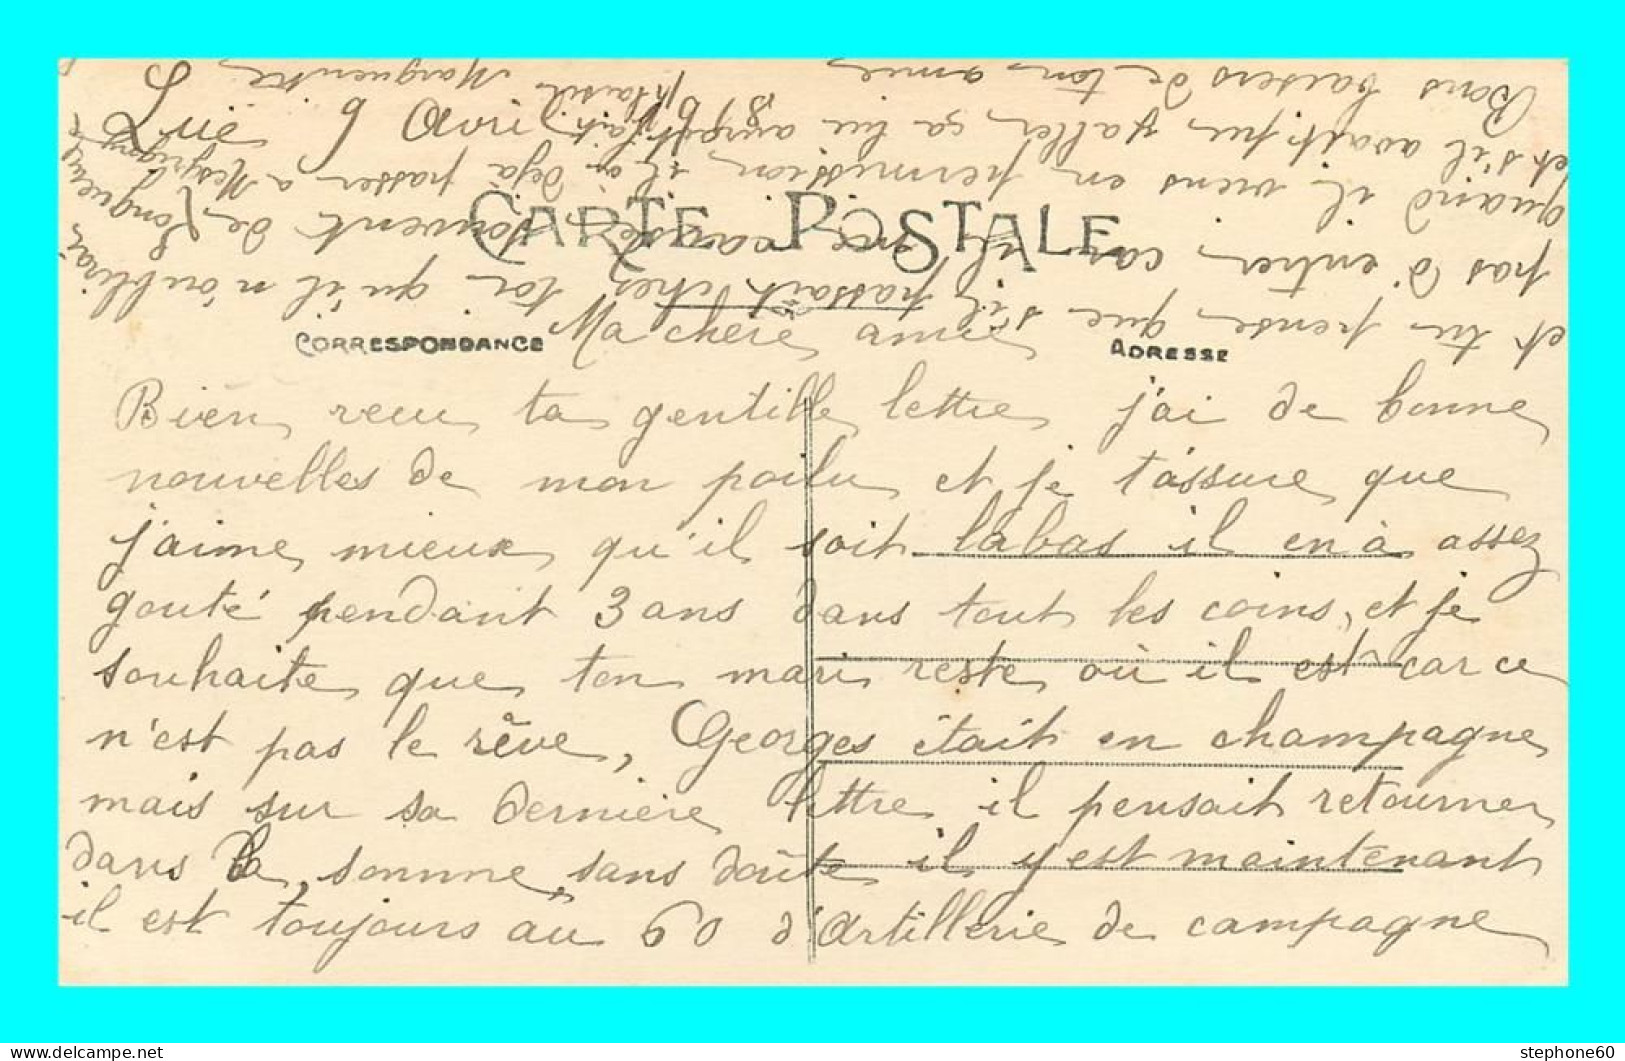 Luc 9 Avril 18
CARTE POSTALE
CORRESPONDANCE
ADRESSE
Ma chère amie
Bien recu ta gentille lettre j'ai de bonne
nouvelles de mon poilu et je t'assure que
j'aime mieux qu'il soit labas il en à assez
gouté pendant 3 ans dans tout les coins, et je
souhaite que ton mari reste où il est car ce
n'est pas le rêve, Georges était en champagne
mais sur sa dernière lettre il pensait retourner
dans la somme, sans doute il y est maintenant
il est toujours au 60 d'Artillerie de campagne
et tu pense que s'il passait chez toi qu'il n'oublirai
pas d'entrer car il me cause souvent de Longueville
quand il viens en permission il a déjà passer a Mesgrigny
et s'il avait pu y aller ça lui aurait fait plaisir
Bons baisers de ton amie Marguerite
stephone60